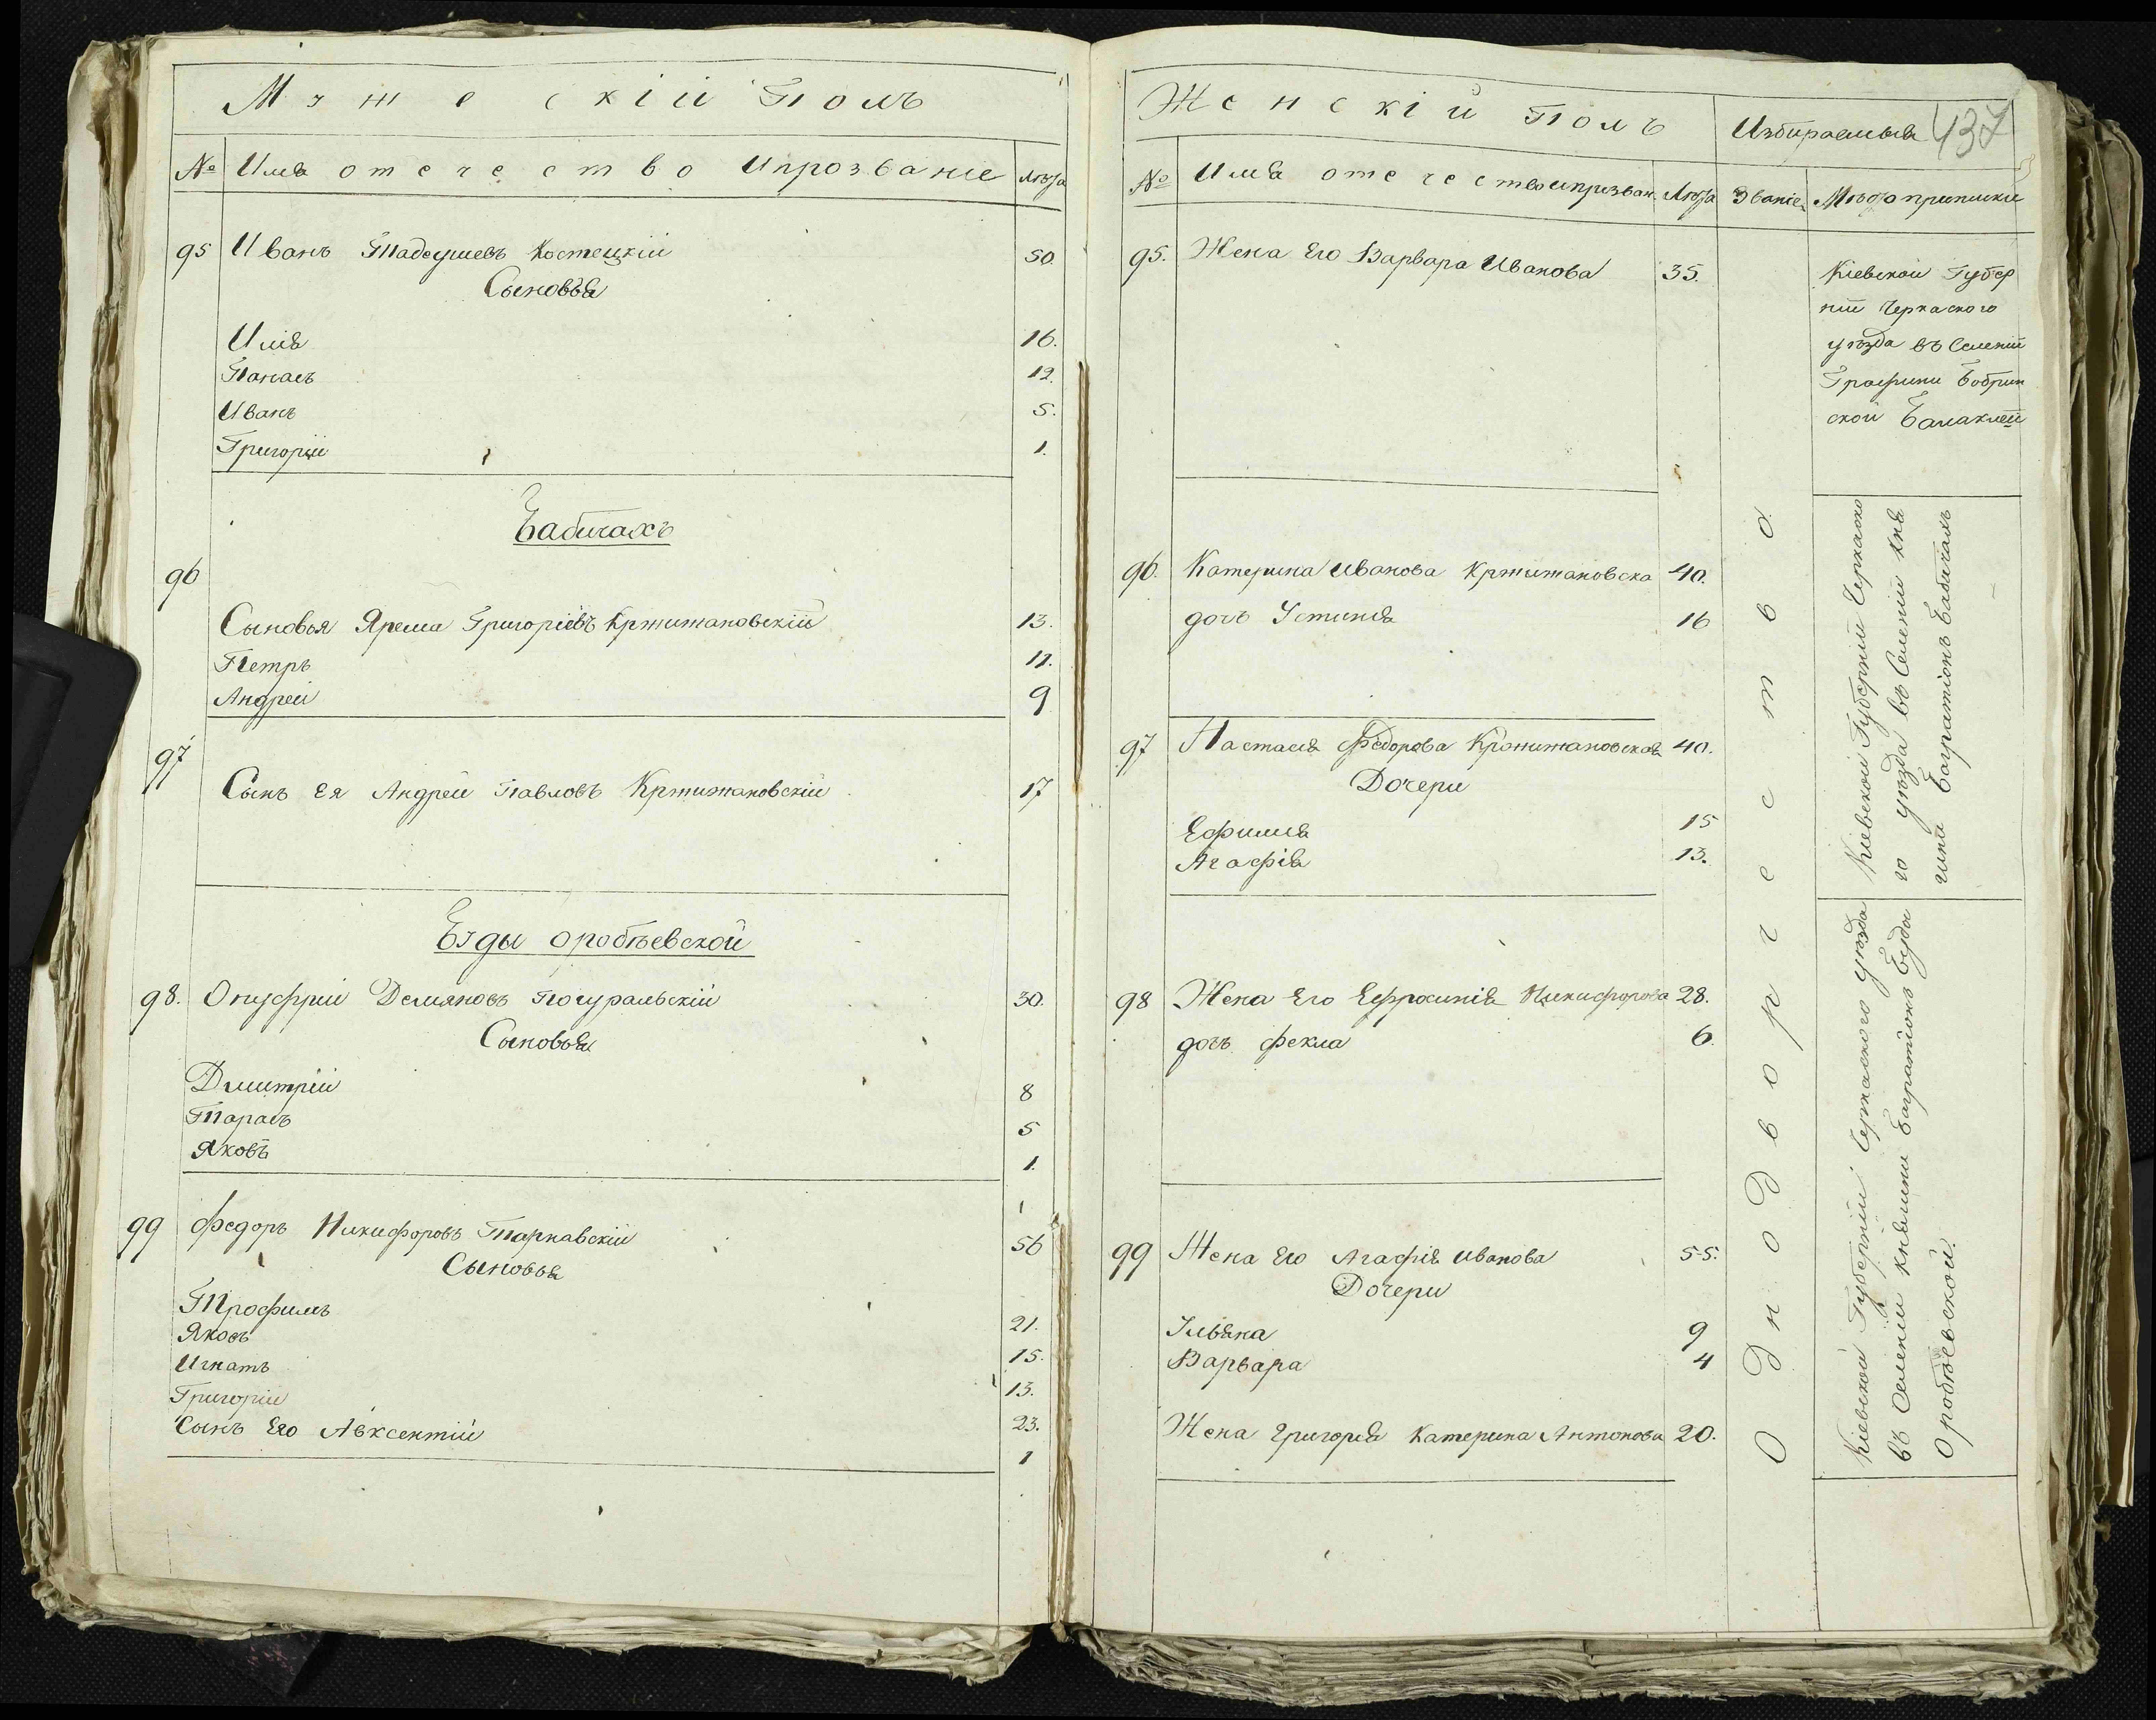 Мужескій Полъ
№ Имя отечество Ипрозваніе Лѣта
95 Иванъ Тадеушевъ Костецкій 50.
Сыновья
Илія 16.
Панасъ 12.
Иванъ 5.
Григорій 1.
Бабичахъ
96
Сыновья Ярема Григоріевъ Кржижановскій 13.
Петръ 11.
Андрей 9
97
Сынъ Ея Андрей Павловъ Кржижановскій 17
Буды оробѣевской
98. Онуфрій Демяновъ Погуральскій 30.
Сыновья
Дмитрій 8
Тарасъ 5
Яковъ 1.
99 Федоръ Никифоровъ Тарнавскій 56
Сыновья
Трофимъ 21.
Яковъ 15.
Игнатъ 13.
Григорій 23.
Сынъ Его Авксентій 1
Женскій Полъ Избираемыя 437
№ Имя отечествоипрозван. Лѣта Званіе Мѣсто приписки
95. Жена Его Варвара Иванова 35.
96. Катерина Иванова Кржижановска 40.
дочь Устинія 16
97 Настасія Федорова Кржижановская 40.
Дочери
Ефимія 15
Агафія 13.
98 Жена Его Ефросинія Никифорова 28.
дочь Фекла 6.
99 Жена Его Агафія Иванова 55.
Дочери
Ульяна 9
Варвара 4
Жена Григорія Катерина Антонова 20.
Однодворчество
Кіевской Губер
ніи Черкаского
уѣзда въ Селеніи
Графини Бобрин
ской Балаклей
Кіевской Губерніи Черкаско
го уѣзда въ Селеніи Кня
гини Багратіонъ Бабичахъ
Кіевской Губерніи Черкаского уѣзда
въ Селеніи княгини Багратіонъ Буды
Оробѣевской.